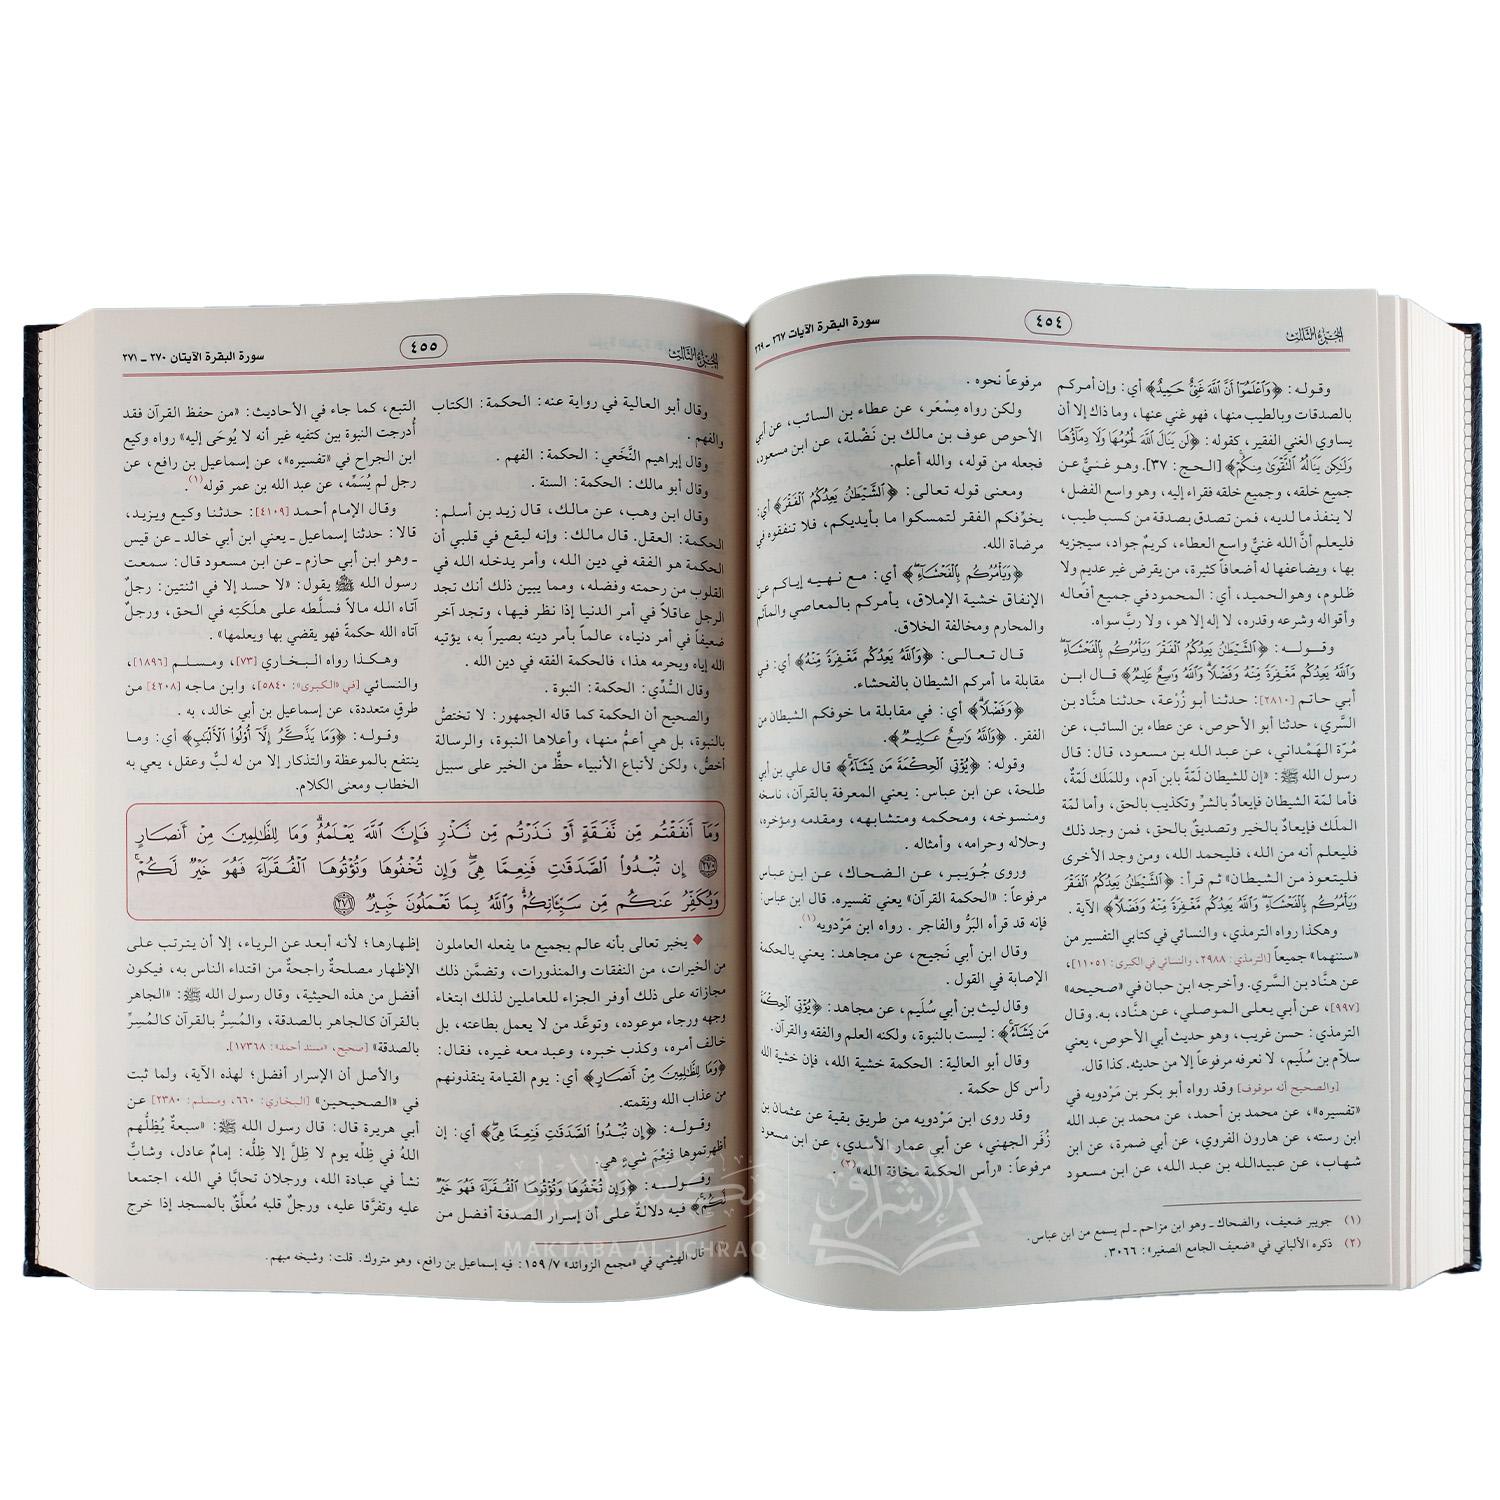 الجزء الثالث
٤٥٤
سورة البقرة الآيات ٢٦٧ ـ ٢٦٩
وقوله: ﴿وَٱعْلَمُوٓا۟ أَنَّ ٱللَّهَ غَنِىٌّ حَمِيدٌ﴾ أي: وإن أمركم
بالصدقات وبالطيب منها، فهو غني عنها، وما ذاك إلا أن
يساوي الغني الفقير، كقوله: ﴿لَن يَنَالَ ٱللَّهَ لُحُومُهَا وَلَا دِمَآؤُهَا
وَلَـٰكِن يَنَالُهُ ٱلتَّقْوَىٰ مِنكُمْ﴾ [الحج: ٣٧]. وهو غنيٌّ عن
جميع خلقه، وجميع خلقه فقراء إليه، وهو واسع الفضل،
لا ينفذ ما لديه، فمن تصدق بصدقة من كسب طيب،
فليعلم أنَّ الله غنيٌّ واسع العطاء، كريمٌ جواد، سيجزيه
بها، ويضاعفها له أضعافاً كثيرة، من يقرض غير عديمٍ ولا
ظلوم، وهو الحميد، أي: المحمود في جميع أفعاله
وأقواله وشرعه وقدره، لا إله إلا هو، ولا ربَّ سواه.
وقوله: ﴿ٱلشَّيْطَـٰنُ يَعِدُكُمُ ٱلْفَقْرَ وَيَأْمُرُكُم بِٱلْفَحْشَآءِ
وَٱللَّهُ يَعِدُكُم مَّغْفِرَةً مِّنْهُ وَفَضْلًا وَٱللَّهُ وَٰسِعٌ عَلِيمٌ﴾ قال ابن
أبي حاتم [٢٨١٠]: حدثنا أبو زُرْعة، حدثنا هنَّاد بن
السَّري، حدثنا أبو الأحوص، عن عطاء بن السائب، عن
مُرّة الهَمْداني، عن عبد الله بن مسعود، قال: قال
رسول الله ﷺ: «إن للشيطان لَمّةً بابن آدم، وللمَلَك لَمّةً،
فأما لمّة الشيطان فإيعادٌ بالشرِّ وتكذيب بالحق، وأما لمّة
الملَك فإيعادٌ بالخير وتصديقٌ بالحق، فمن وجد ذلك
فليعلم أنه من الله، فليحمد الله، ومن وجد الأخرى
فليتعوذ من الشيطان» ثم قرأ: ﴿ٱلشَّيْطَـٰنُ يَعِدُكُمُ ٱلْفَقْرَ
وَيَأْمُرُكُم بِٱلْفَحْشَآءِ وَٱللَّهُ يَعِدُكُم مَّغْفِرَةً مِّنْهُ وَفَضْلًا﴾ الآية.
وهكذا رواه الترمذي، والنسائي في كتابي التفسير من
«سننهما» جميعاً [الترمذي: ٢٩٨٨، والنسائي في الكبرى: ١١٠٥١]،
عن هنَّاد بن السَّري. وأخرجه ابن حبان في «صحيحه»
[٩٩٧]، عن أبي يعلى الموصلي، عن هنَّاد، به. وقال
الترمذي: حسن غريب، وهو حديث أبي الأحوص، يعني
سلّام بن سُليم، لا نعرفه مرفوعاً إلا من حديثه. كذا قال.
[والصحيح أنه موقوف] وقد رواه أبو بكر بن مَرْدويه في
«تفسيره»، عن محمد بن أحمد، عن محمد بن عبد الله
ابن رسته، عن هارون الفروي، عن أبي ضمرة، عن ابن
شهاب، عن عبيد الله بن عبد الله، عن ابن مسعود
مرفوعاً نحوه.
ولكن رواه مِسْعَر، عن عطاء بن السائب، عن أبي
الأحوص عوف بن مالك بن نَضْلة، عن ابن مسعود،
فجعله من قوله، والله أعلم.
ومعنى قوله تعالى: ﴿ٱلشَّيْطَـٰنُ يَعِدُكُمُ ٱلْفَقْرَ﴾ أي:
يخوّفكم الفقر لتمسكوا ما بأيديكم، فلا تنفقوه في
مرضاة الله.
﴿وَيَأْمُرُكُم بِٱلْفَحْشَآءِ﴾ أي: مع نهيه إياكم عن
الإنفاق خشية الإملاق، يأمركم بالمعاصي والمآثم
والمحارم ومخالفة الخلاق.
قال تعالى: ﴿وَٱللَّهُ يَعِدُكُم مَّغْفِرَةً مِّنْهُ﴾ أي: في
مقابلة ما أمركم الشيطان بالفحشاء.
﴿وَفَضْلًا﴾ أي: في مقابلة ما خوفكم الشيطان من
الفقر. ﴿وَٱللَّهُ وَٰسِعٌ عَلِيمٌ﴾.
وقوله: ﴿يُؤْتِى ٱلْحِكْمَةَ مَن يَشَآءُ﴾ قال علي بن أبي
طلحة، عن ابن عباس: يعني المعرفة بالقرآن، ناسخه
ومنسوخه، ومحكمه ومتشابهه، ومقدمه ومؤخره،
وحلاله وحرامه، وأمثاله.
وروى جُوَيبر، عن الضحاك، عن ابن عباس
مرفوعاً: «الحكمة القرآن» يعني تفسيره. قال ابن عباس:
فإنه قد قرأه البَرُّ والفاجر. رواه ابن مَرْدويه(١).
وقال ابن أبي نَجيح، عن مجاهد: يعني بالحكمة
الإصابة في القول.
وقال ليث بن أبي سُلَيم، عن مجاهد: ﴿يُؤْتِى ٱلْحِكْمَةَ
مَن يَشَآءُ﴾: ليست بالنبوة، ولكنه العلم والفقه والقرآن.
وقال أبو العالية: الحكمة خشية الله، فإن خشية الله
رأس كل حكمة.
وقد روى ابن مَرْدويه من طريق بقية عن عثمان بن
زُفَر الجهني، عن أبي عمار الأسدي، عن ابن مسعود
مرفوعاً: «رأس الحكمة مخافة الله»(٢).
(١) جويبر ضعيف، والضحاك ـ وهو ابن مزاحم ـ لم يسمع من ابن عباس.
(٢) ذكره الألباني في «ضعيف الجامع الصغير»: ٣٠٦٦.
الجزء الثالث
٤٥٥
سورة البقرة الآيتان ٢٧٠ ـ ٢٧١
وقال أبو العالية في رواية عنه: الحكمة: الكتاب
والفهم.
وقال إبراهيم النَّخَعي: الحكمة: الفهم.
وقال أبو مالك: الحكمة: السنة.
وقال ابن وهب، عن مالك، قال زيد بن أسلم:
الحكمة: العقل. قال مالك: وإنه ليقع في قلبي أن
الحكمة هو الفقه في دين الله، وأمر يدخله الله في
القلوب من رحمته وفضله، ومما يبين ذلك أنك تجد
الرجل عاقلاً في أمر الدنيا إذا نظر فيها، وتجد آخر
ضعيفاً في أمر دنياه، عالماً بأمر دينه بصيراً به، يؤتيه
الله إياه ويحرمه هذا، فالحكمة الفقه في دين الله.
وقال السُّدِّي: الحكمة: النبوة.
والصحيح أن الحكمة كما قاله الجمهور: لا تختصُّ
بالنبوة، بل هي أعمُّ منها، وأعلاها النبوة، والرسالة
أخصُّ، ولكن لأتباع الأنبياء حظٌّ من الخير على سبيل
التبع، كما جاء في الأحاديث: «من حفظ القرآن فقد
أُدرجت النبوة بين كتفيه غير أنه لا يُوحَى إليه» رواه وكيع
ابن الجراح في «تفسيره»، عن إسماعيل بن رافع، عن
رجل لم يُسَمِّه، عن عبد الله بن عمر قوله(١).
وقال الإمام أحمد [٤١٠٩]: حدثنا وكيع ويزيد،
قالا: حدثنا إسماعيل ـ يعني ابن أبي خالد ـ عن قيس
ـ وهو ابن أبي حازم ـ عن ابن مسعود قال: سمعت
رسول الله ﷺ يقول: «لا حسد إلا في اثنتين: رجلٌ
آتاه الله مالاً فسلَّطه على هلَكَته في الحق، ورجلٌ
آتاه الله حكمةً فهو يقضي بها ويعلمها».
وهكذا رواه البخاري [٧٣]، ومسلم [١٨٩٦]،
والنسائي [في «الكبرى»: ٥٨٤٠]، وابن ماجه [٤٢٠٨] من
طرقٍ متعددة، عن إسماعيل بن أبي خالد، به.
وقوله: ﴿وَمَا يَذَّكَّرُ إِلَّآ أُو۟لُوا۟ ٱلْأَلْبَـٰبِ﴾ أي: وما
ينتفع بالموعظة والتذكار إلا من له لبٌّ وعقل، يعي به
الخطاب ومعنى الكلام.
وَمَآ أَنفَقْتُم مِّن نَّفَقَةٍ أَوْ نَذَرْتُم مِّن نَّذْرٍ فَإِنَّ ٱللَّهَ يَعْلَمُهُۥ وَمَا لِلظَّـٰلِمِينَ مِنْ أَنصَارٍ
٢٧٠ إِن تُبْدُوا۟ ٱلصَّدَقَـٰتِ فَنِعِمَّا هِىَ وَإِن تُخْفُوهَا وَتُؤْتُوهَا ٱلْفُقَرَآءَ فَهُوَ خَيْرٌ لَّكُمْ
وَيُكَفِّرُ عَنكُم مِّن سَيِّـَٔاتِكُمْ وَٱللَّهُ بِمَا تَعْمَلُونَ خَبِيرٌ ٢٧١
يخبر تعالى بأنه عالم بجميع ما يفعله العاملون
من الخيرات، من النفقات والمنذورات، وتضمَّن ذلك
مجازاته على ذلك أوفر الجزاء للعاملين لذلك ابتغاء
وجهه ورجاء موعوده، وتوعَّد من لا يعمل بطاعته، بل
خالف أمره، وكذب خبره، وعبد معه غيره، فقال:
﴿وَمَا لِلظَّـٰلِمِينَ مِنْ أَنصَارٍ﴾ أي: يوم القيامة ينقذونهم
من عذاب الله ونِقمته.
وقوله: ﴿إِن تُبْدُوا۟ ٱلصَّدَقَـٰتِ فَنِعِمَّا هِىَ﴾ أي: إن
أظهرتموها فنِعْمَ شيءٍ هي.
وقوله: ﴿وَإِن تُخْفُوهَا وَتُؤْتُوهَا ٱلْفُقَرَآءَ فَهُوَ خَيْرٌ
لَّكُمْ﴾ فيه دلالةٌ على أن إسرار الصدقة أفضل من
إظهارها؛ لأنه أبعد عن الرياء، إلا أن يترتب على
الإظهار مصلحةٌ راجحةٌ من اقتداء الناس به، فيكون
أفضل من هذه الحيثية، وقال رسول الله ﷺ: «الجاهر
بالقرآن كالجاهر بالصدقة، والمُسِرُّ بالقرآن كالمُسِرِّ
بالصدقة» [صحيح، «مسند أحمد»: ١٧٣٦٨].
والأصل أن الإسرار أفضل؛ لهذه الآية، ولما ثبت
في «الصحيحين» [البخاري: ٦٦٠، ومسلم: ٢٣٨٠] عن
أبي هريرة قال: قال رسول الله ﷺ: «سبعةٌ يُظِلُّهم
اللهُ في ظِلِّه يوم لا ظِلَّ إلا ظِلُّه: إمامٌ عادل، وشابٌّ
نشأ في عبادة الله، ورجلان تحابَّا في الله، اجتمعا
عليه وتفرَّقا عليه، ورجلٌ قلبه مُعلَّقٌ بالمسجد إذا خرج
(١) قال الهيثمي في «مجمع الزوائد» ٧/ ١٥٩: فيه إسماعيل بن رافع، وهو متروك. قلت: وشيخه مبهم.
مكتبة الإشراق
MAKTABA AL-ICHRAQ
الإشراق